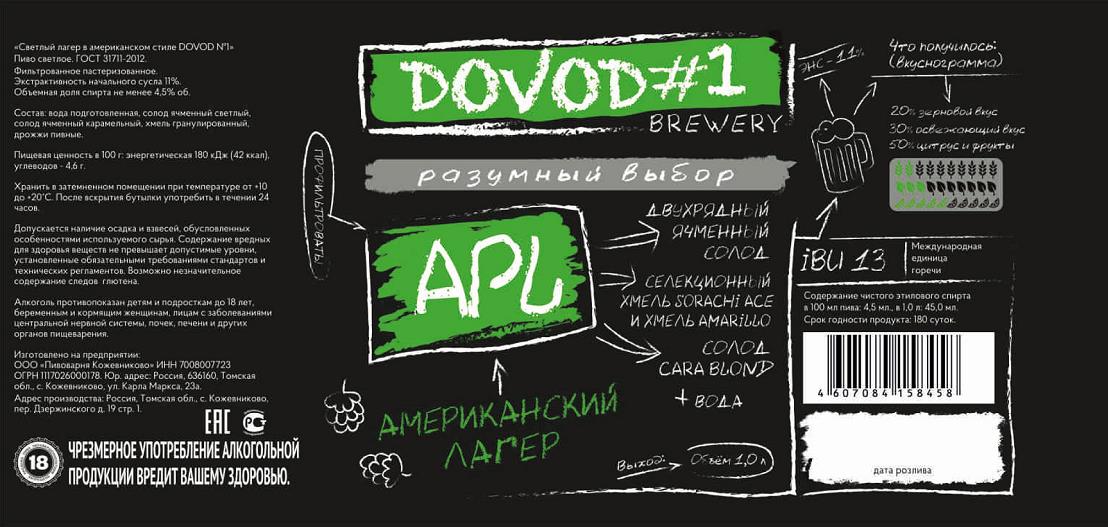 «Светлый лагер в американском стиле DOVOD №1»
Пиво светлое. ГОСТ 31711-2012.
Фильтрованное пастеризованное.
Экстрактивность начального сусла 11%.
Объемная доля спирта не менее 4,5% об.
Состав: вода подготовленная, солод ячменный светлый,
солод ячменный карамельный, хмель гранулированный,
дрожжи пивные.
Пищевая ценность в 100 г: энергетическая 180 кДж (42 ккал),
углеводов - 4,6 г.
Хранить в затемненном помещении при температуре от +10
до +20°С. После вскрытия бутылки употребить в течении 24
часов.
Допускается наличие осадка и взвесей, обусловленных
особенностями используемого сырья. Содержание вредных
для здоровья веществ не превышает допустимые уровни,
установленные обязательными требованиями стандартов и
технических регламентов. Возможно незначительное
содержание следов глютена.
Алкоголь противопоказан детям и подросткам до 18 лет,
беременным и кормящим женщинам, лицам с заболеваниями
центральной нервной системы, почек, печени и других
органов пищеварения.
Изготовлено на предприятии:
ООО «Пивоварня Кожевниково» ИНН 7008007723
ОГРН 1117026000178. Юр. адрес: Россия, 636160, Томская
обл., с. Кожевниково, ул. Карла Маркса, 23а.
Адрес производства: Россия, Томская обл., с. Кожевниково,
пер. Дзержинского д. 19 стр. 1.
ЕАС
18
ЧРЕЗМЕРНОЕ УПОТРЕБЛЕНИЕ АЛКОГОЛЬНОЙ
ПРОДУКЦИИ ВРЕДИТ ВАШЕМУ ЗДОРОВЬЮ.
ПРОФИЛЬТРОВАТЬ
DOVOD#1
BREWERY
разумный выбор
APL
АМЕРИКАНСКИЙ
ЛАГЕР
ДВУХРЯДНЫЙ
ЯЧМЕННЫЙ
СОЛОД
СЕЛЕКЦИОННЫЙ
ХМЕЛЬ SORACHI ACE
И ХМЕЛЬ AMARILLO
СОЛОД
CARA BLOND
+ ВОДА
Выход:
Объём 1,0 л
ЭНС - 11%
Что получилось:
(вкуснограмма)
20% зерновой вкус
30% освежающий вкус
50% цитрус и фрукты
iBU 13
Международная
единица
горечи
Содержание чистого этилового спирта
в 100 мл пива: 4,5 мл., в 1,0 л: 45,0 мл.
Срок годности продукта: 180 суток.
4 607084 158458
дата розлива